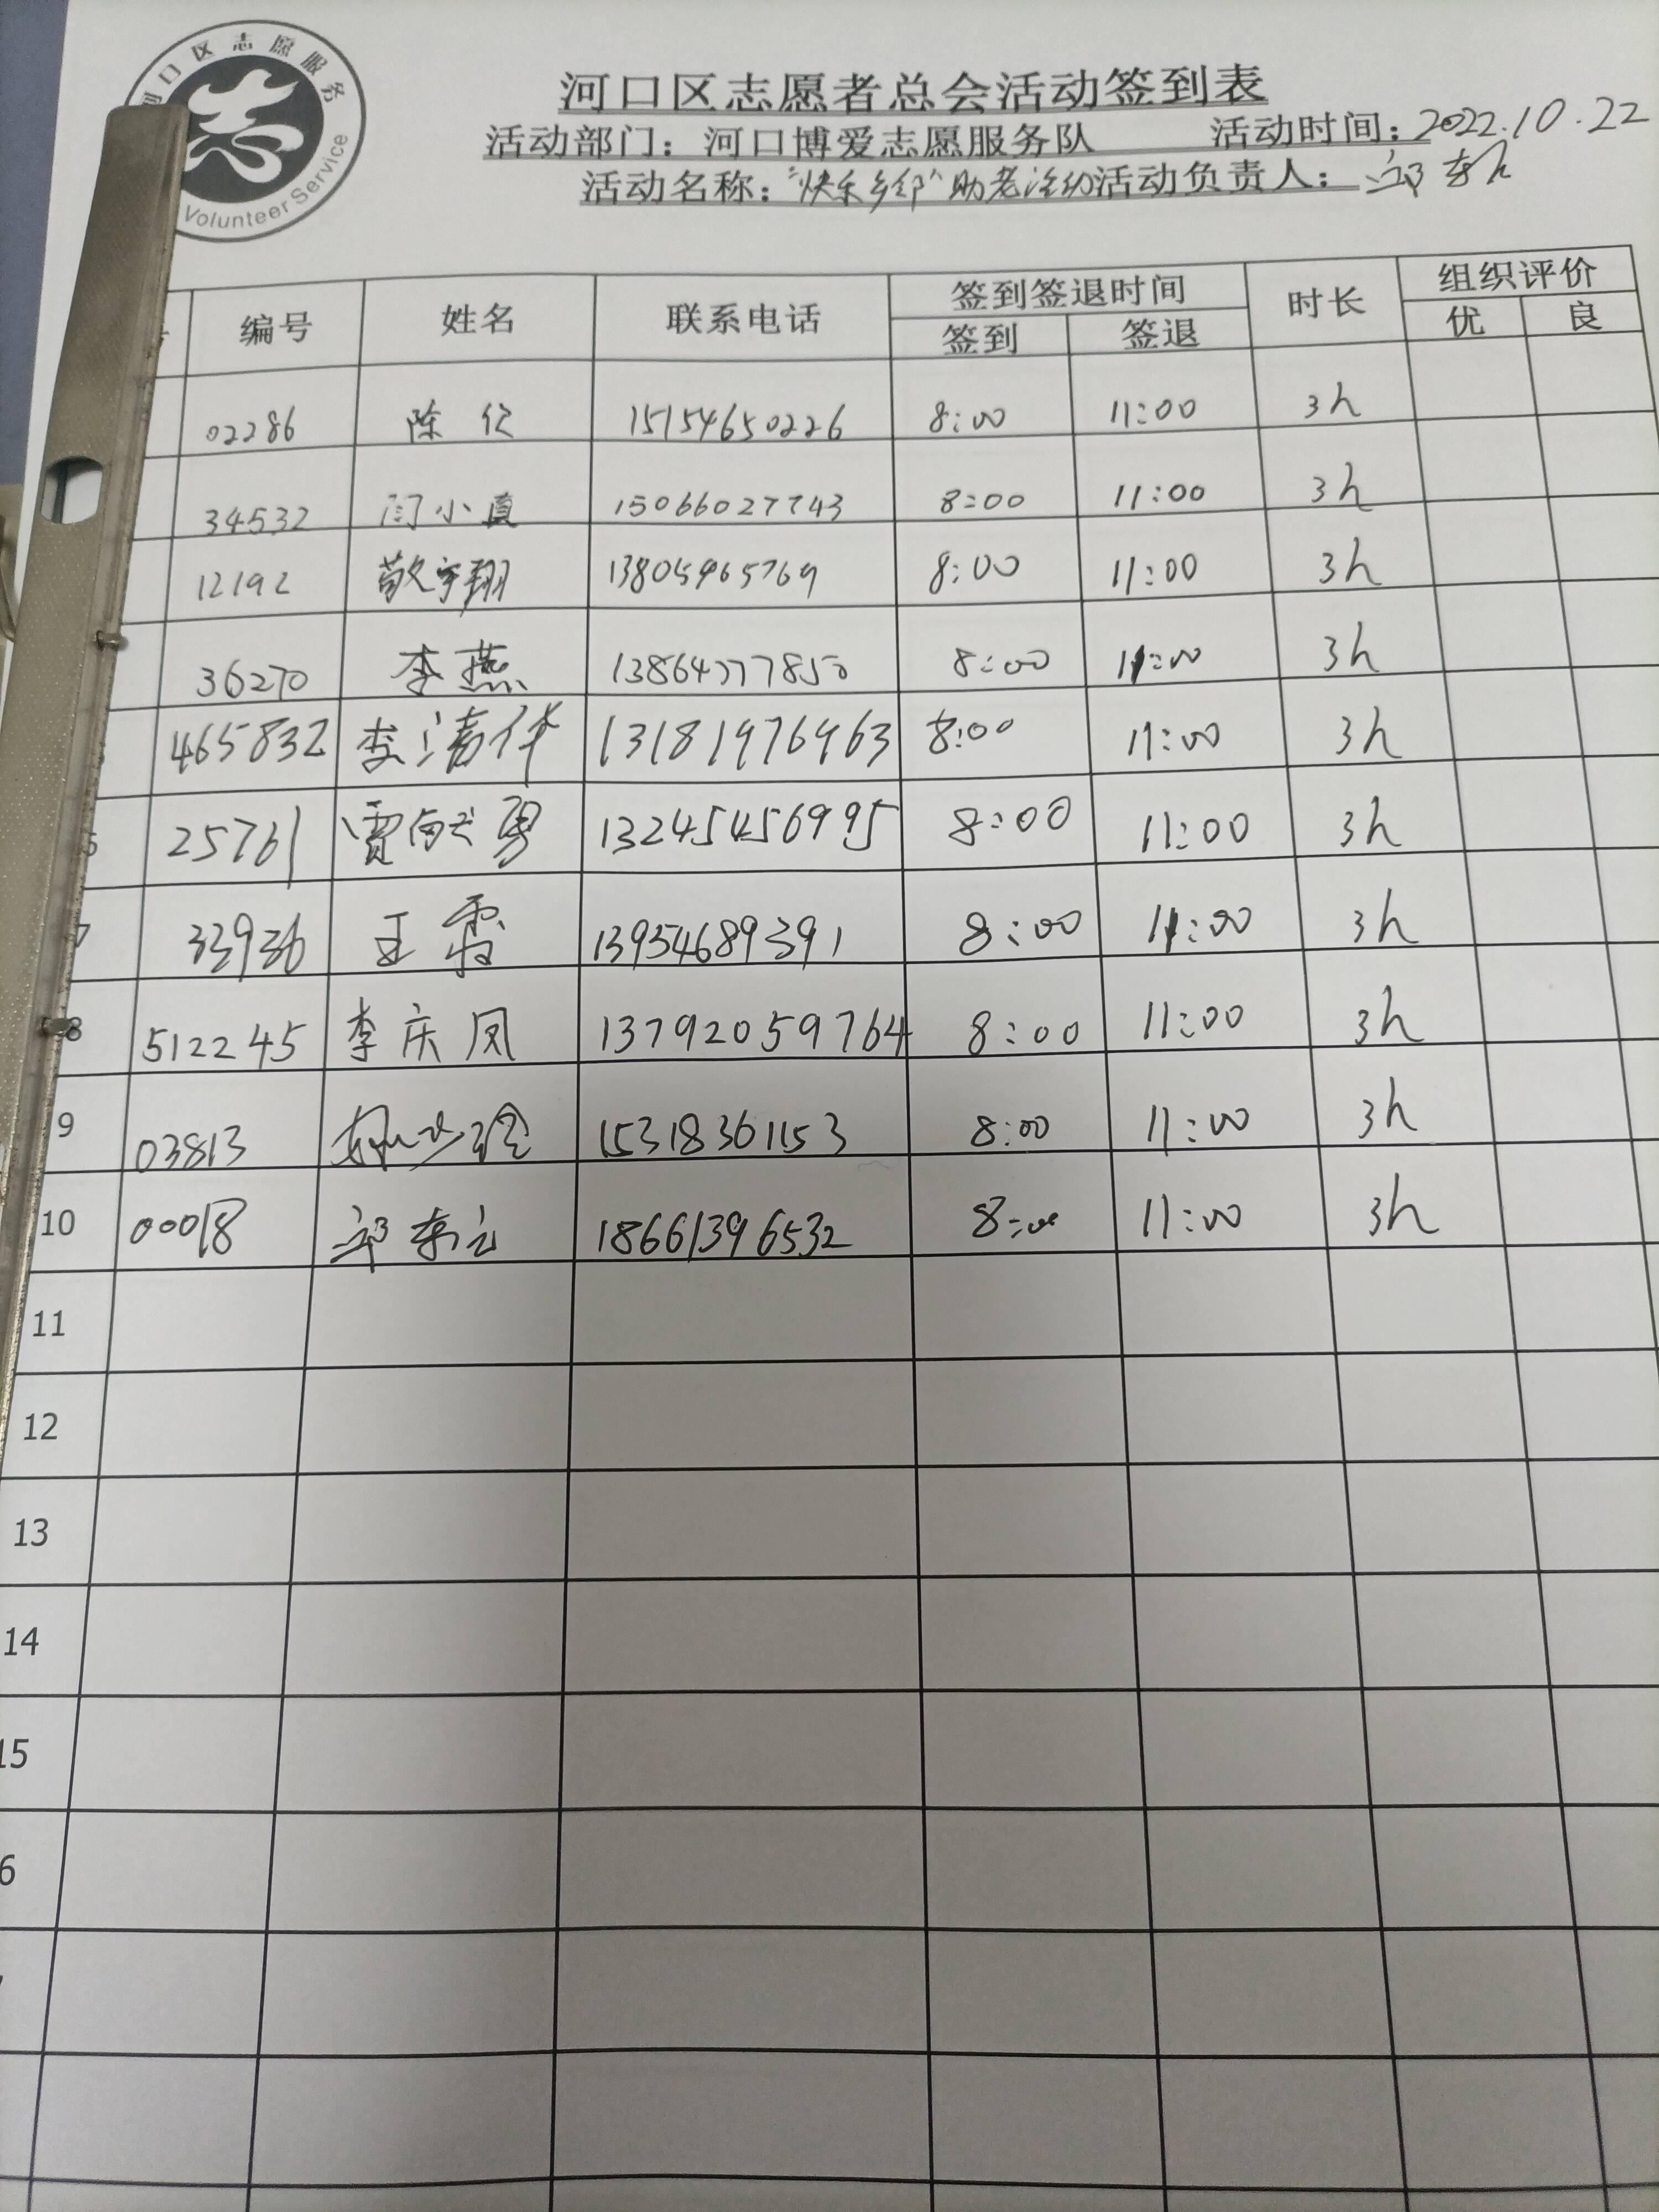 河口区志愿服务
Volunteer Service
河口区志愿者总会活动签到表
活动部门：河口博爱志愿服务队 活动时间：2022.10.22
活动名称："快乐乡邻"助老活动活动负责人：邱
编号 姓名 联系电话 签到签退时间 时长 组织评价
签到 签退 优 良
02286 陈 15154650226 8:00 11:00 3h
34532 闫小直 15066027743 8:00 11:00 3h
12192 敬宇翔 13805465769 8:00 11:00 3h
36270 李燕 13864777850 8:00 11:00 3h
465832 李清华 13181976963 8:00 11:00 3h
25761 贾献勇 13245456995 8:00 11:00 3h
7 33936 王霞 13954689391 8:00 11:00 3h
8 512245 李庆凤 13792059764 8:00 11:00 3h
9 03813 15318361153 8:00 11:00 3h
10 00018 邱 18661396532 8:00 11:00 3h
11
12
13
14
15
6